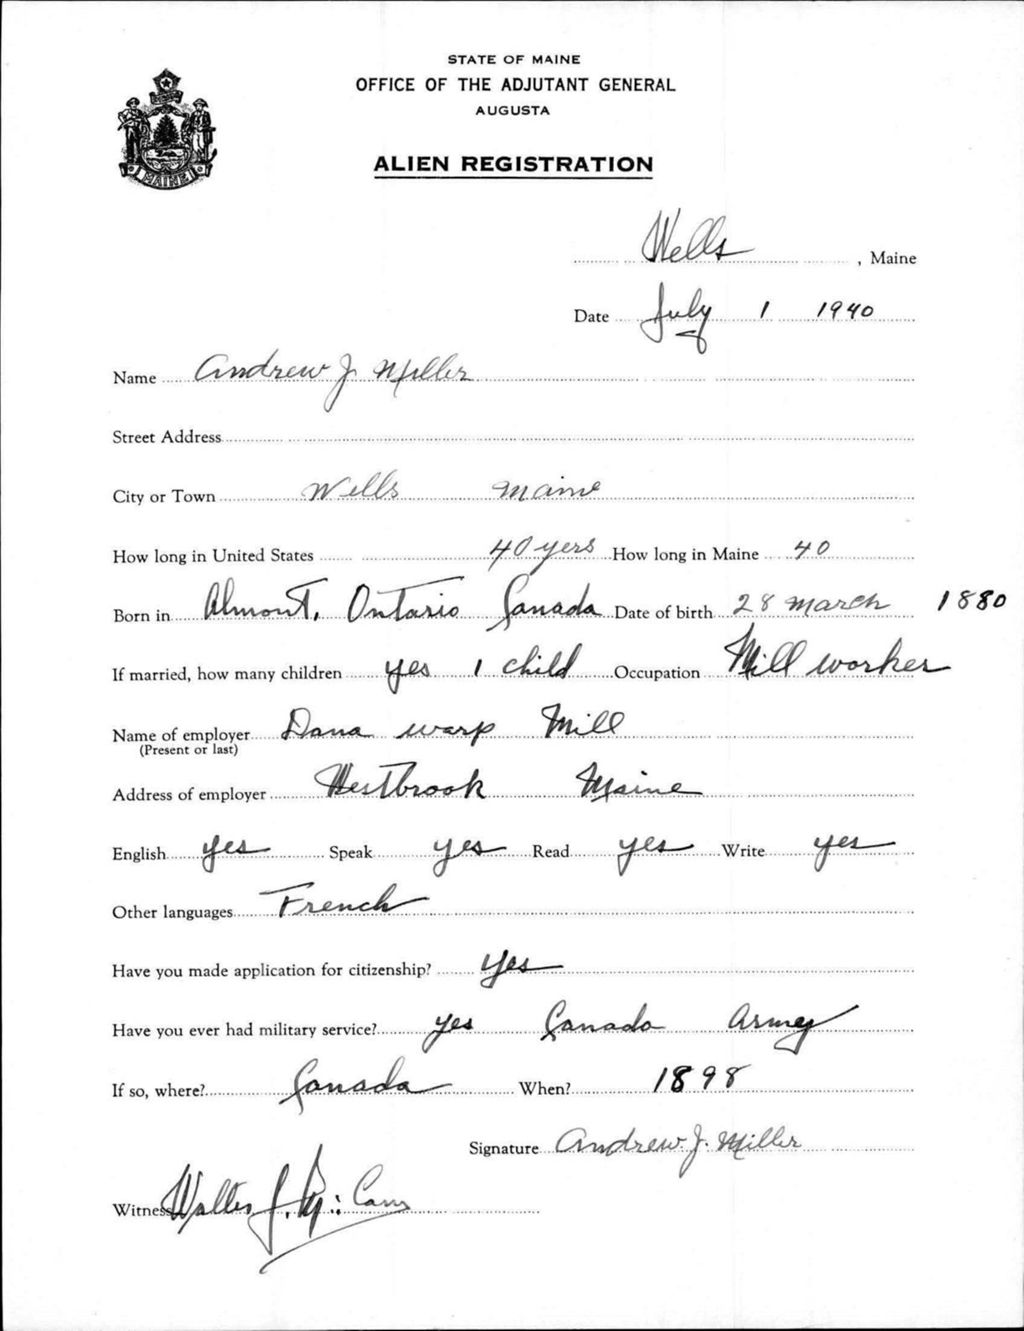 STATE OF MAINE
OFFICE OF THE ADJUTANT GENERAL
AUGUSTA
ALIEN REGISTRATION
MAINE
Wells, Maine
Date July 1 1940
Name Andrew J. Miller
Street Address
City or Town Wells Maine
How long in United States 40 yers How long in Maine 40
Born in Almont, Ontario Canada Date of birth 28 March 1880
If married, how many children yes 1 child Occupation Mill worker
Name of employer Dana warp Mill
(Present or last)
Address of employer Westbrook Maine
English yes Speak yes Read yes Write yes
Other languages French
Have you made application for citizenship? yes
Have you ever had military service? yes Canada Army
If so, where? Canada When? 1898
Signature Andrew J. Miller
Witness Walter J.